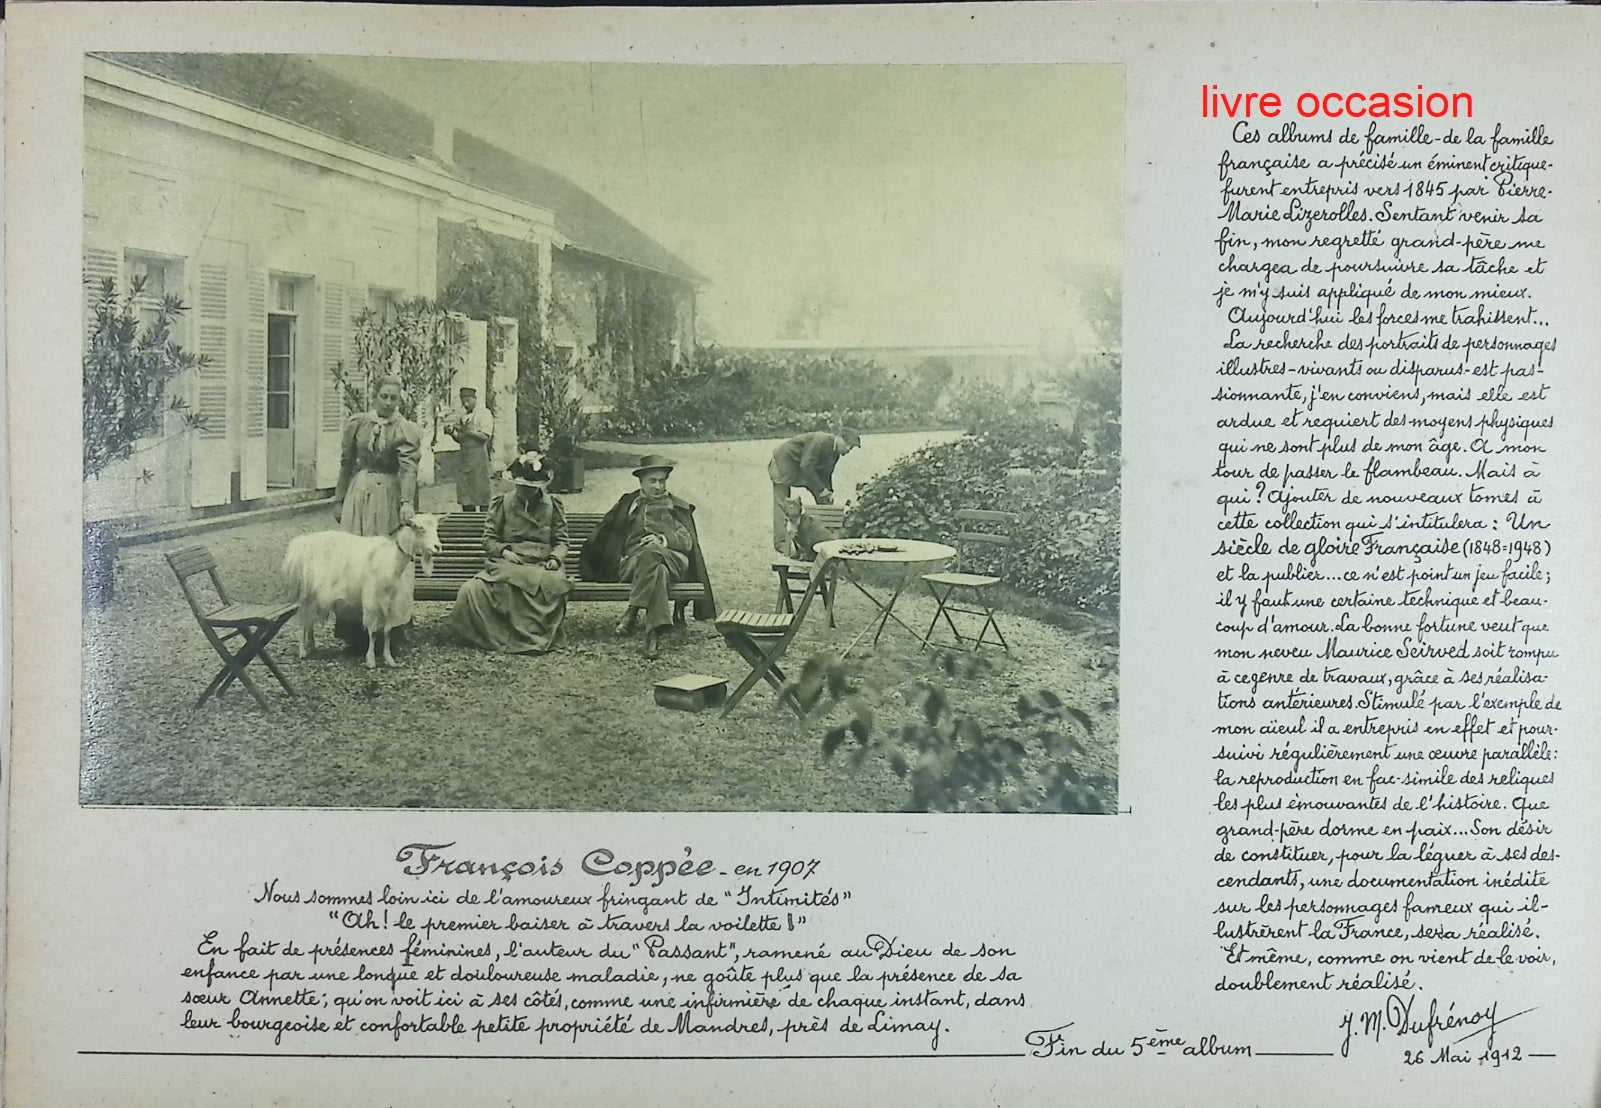 livre occasion
Ces albums de famille - de la famille
française a précisé un éminent critique -
furent entrepris vers 1845 par Pierre-
Marie Lizerolles. Sentant venir sa
fin, mon regretté grand-père me
chargea de poursuivre sa tâche et
je m'y suis appliqué de mon mieux.
Aujourd'hui les forces me trahissent...
La recherche des portraits de personnages
illustres - vivants ou disparus - est pas-
sionnante, j'en conviens, mais elle est
ardue et requiert des moyens physiques
qui ne sont plus de mon âge. A mon
tour de passer le flambeau. Mais à
qui ? Ajouter de nouveaux tomes à
cette collection qui s'intitulera : Un
siècle de gloire Française (1848=1948)
et la publier... ce n'est point un jeu facile ;
il y faut une certaine technique et beau-
coup d'amour. La bonne fortune veut que
mon neveu Maurice Seirved soit rompu
à ce genre de travaux, grâce à ses réalisa-
tions antérieures. Stimulé par l'exemple de
mon aïeul il a entrepris en effet et pour-
suivi régulièrement une œuvre parallèle :
la reproduction en fac-simile des reliques
les plus émouvantes de l'histoire. Que
grand-père dorme en paix... Son désir
de constituer, pour la léguer à ses des-
cendants, une documentation inédite
sur les personnages fameux qui il-
lustrèrent la France, sera réalisé.
Et même, comme on vient de le voir,
doublement réalisé.
J. M. Dufrénoy
26 Mai 1912
François Coppée - en 1907
Nous sommes loin ici de l'amoureux fringant de "Intimités"
"Ah ! le premier baiser à travers la voilette !"
En fait de présences féminines, l'auteur du "Passant", ramené au Dieu de son
enfance par une longue et douloureuse maladie, ne goûte plus que la présence de sa
sœur Annette ; qu'on voit ici à ses côtés, comme une infirmière de chaque instant, dans
leur bourgeoise et confortable petite propriété de Mandres, près de Limay.
Fin du 5ème album